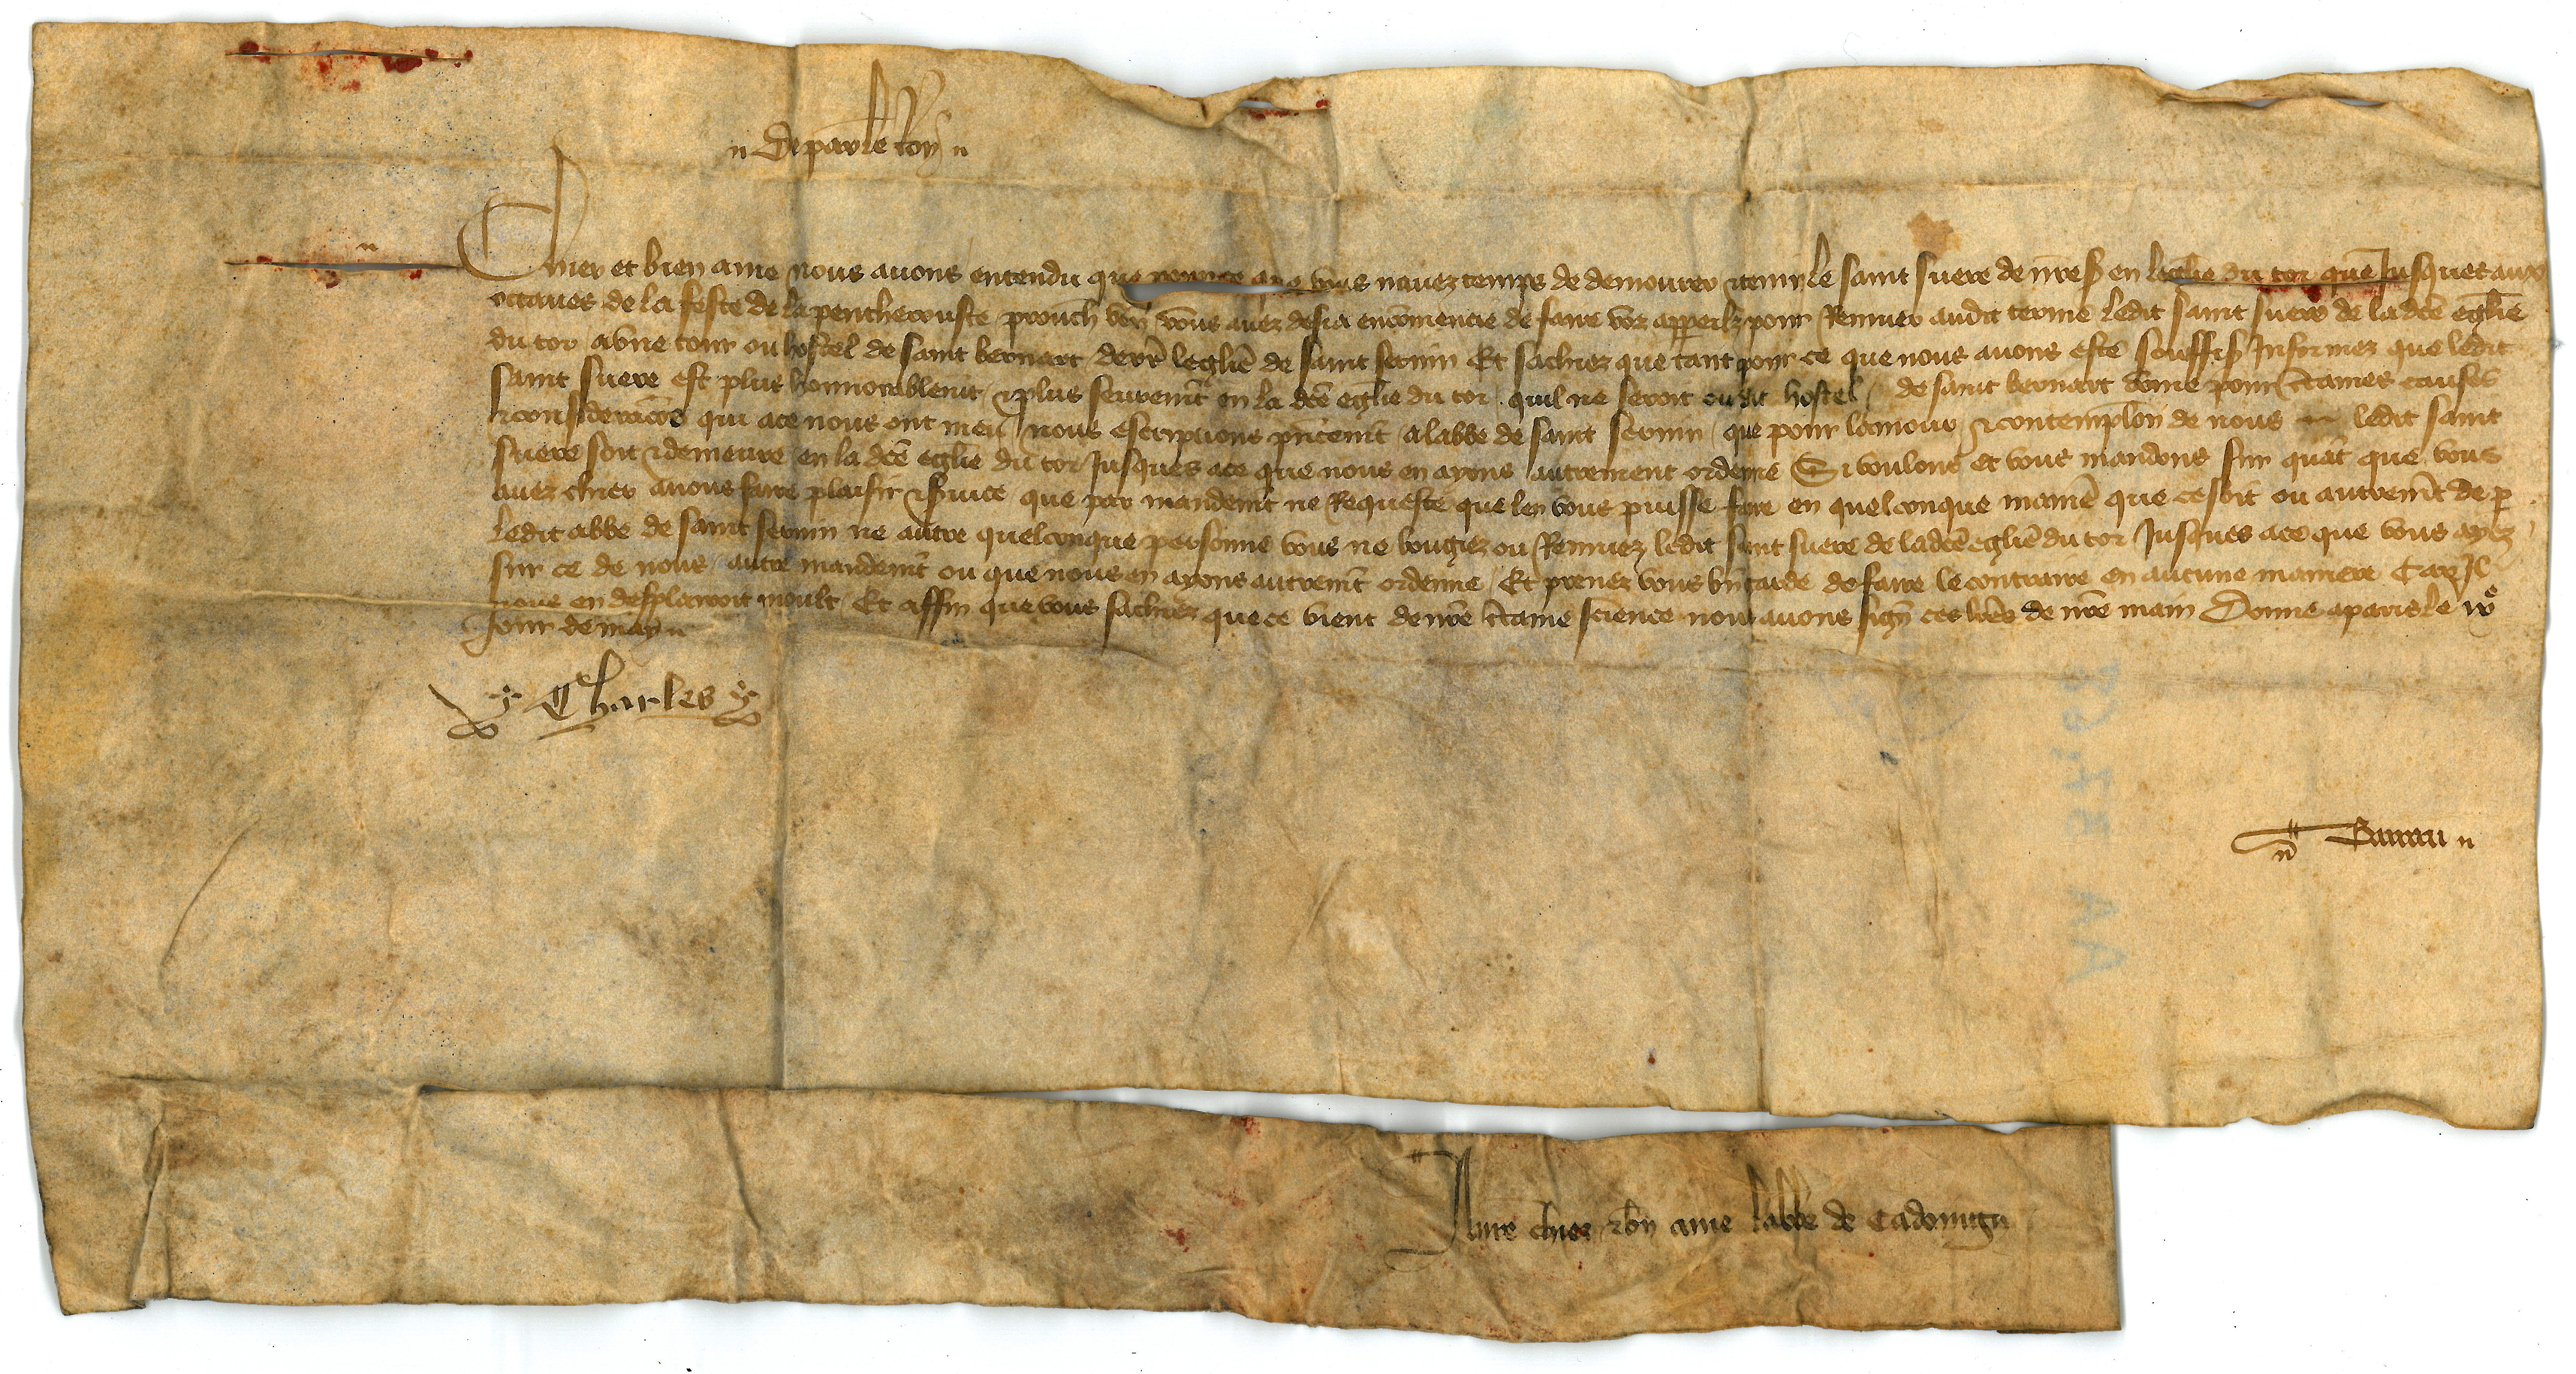 De par le Roy
Chier et bien ame nous avons entendu que pource que vous navez temps de demourer & tenir le saint suere de nre s en leglie du tor que Jusques aux
octaves de la feste de la penthecouste prouch ven vous avez desia encōmencie de faire voz appeilz pour Remuer audit terme ledit saint suere de ladcē eglie
du tor a vne tour ou hostel de saint bernart derr̄e leglie de saint sernin Et sachiez que tant pour ce que nous avons este souffis Informez que ledit
saint suere est plus honnorablemt & plus seuremt en la dcē eglie du tor quil ne seroit oudit hostel de saint bernart cōme pour c̄taines causes
& consideracōns qui ace nous ont meu nous escripvons p̄ntemt a labbe de saint sernin que pour lamour & contemplōn de nous ledit saint
suere soit & demeure en la dcē eglie du tor Jusques ace que nous en ayons autrement ordene Si voulons et vous mandons sur quāt que vous
avez chier a nous faire plaisir & s̄vice que par mandemt ne Requeste que len vous puisse faire en quelconque manie que ce soit ou autremt de p
ledit abbe de saint sernin ne autre quelconque personne vous ne bougiez ou Remuez ledit saint suere de ladcē eglie du tor Jusques ace que vous ayez
sur ce de nous autre mandemt ou que nous en ayons autremt ordenne Et prenez vous bn garde de faire le contraire en aucune maniere Car Il
nous en desplairoit moult Et affin que vous sachiez que ce vient de nr̄e c̄taine science nous avons sign ces lr̄es de nr̄e main Donne a paris le
Jour de may
Charles
Barrau
A nr̄e chier & bn ame labbe de Cadoing